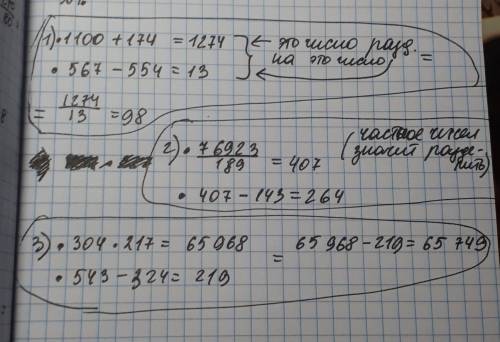 1) • 1100 + 174 = 1274 ← это число разд.
• 567 − 554 = 13 на это число =
= 1274/13 = 98
2) • 76923/189 = 407 (частное чисел значит разделить)
• 407 − 143 = 264
3) • 304 • 217 = 65968
• 543 − 324 = 219
= 65968 − 219 = 65749